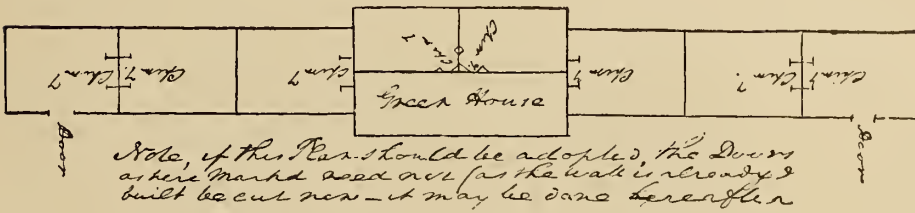 Chim⁠y
Chimy.
Chimy
Chimy
Chimy
Chimy
Chimy
Chimy
Chimy.
Chimy
Green House
Door
Door
Note, if this Plan should be adopted, the Doors
as here markd need not (as the wall is already
built be cut now – it may be done hereafter